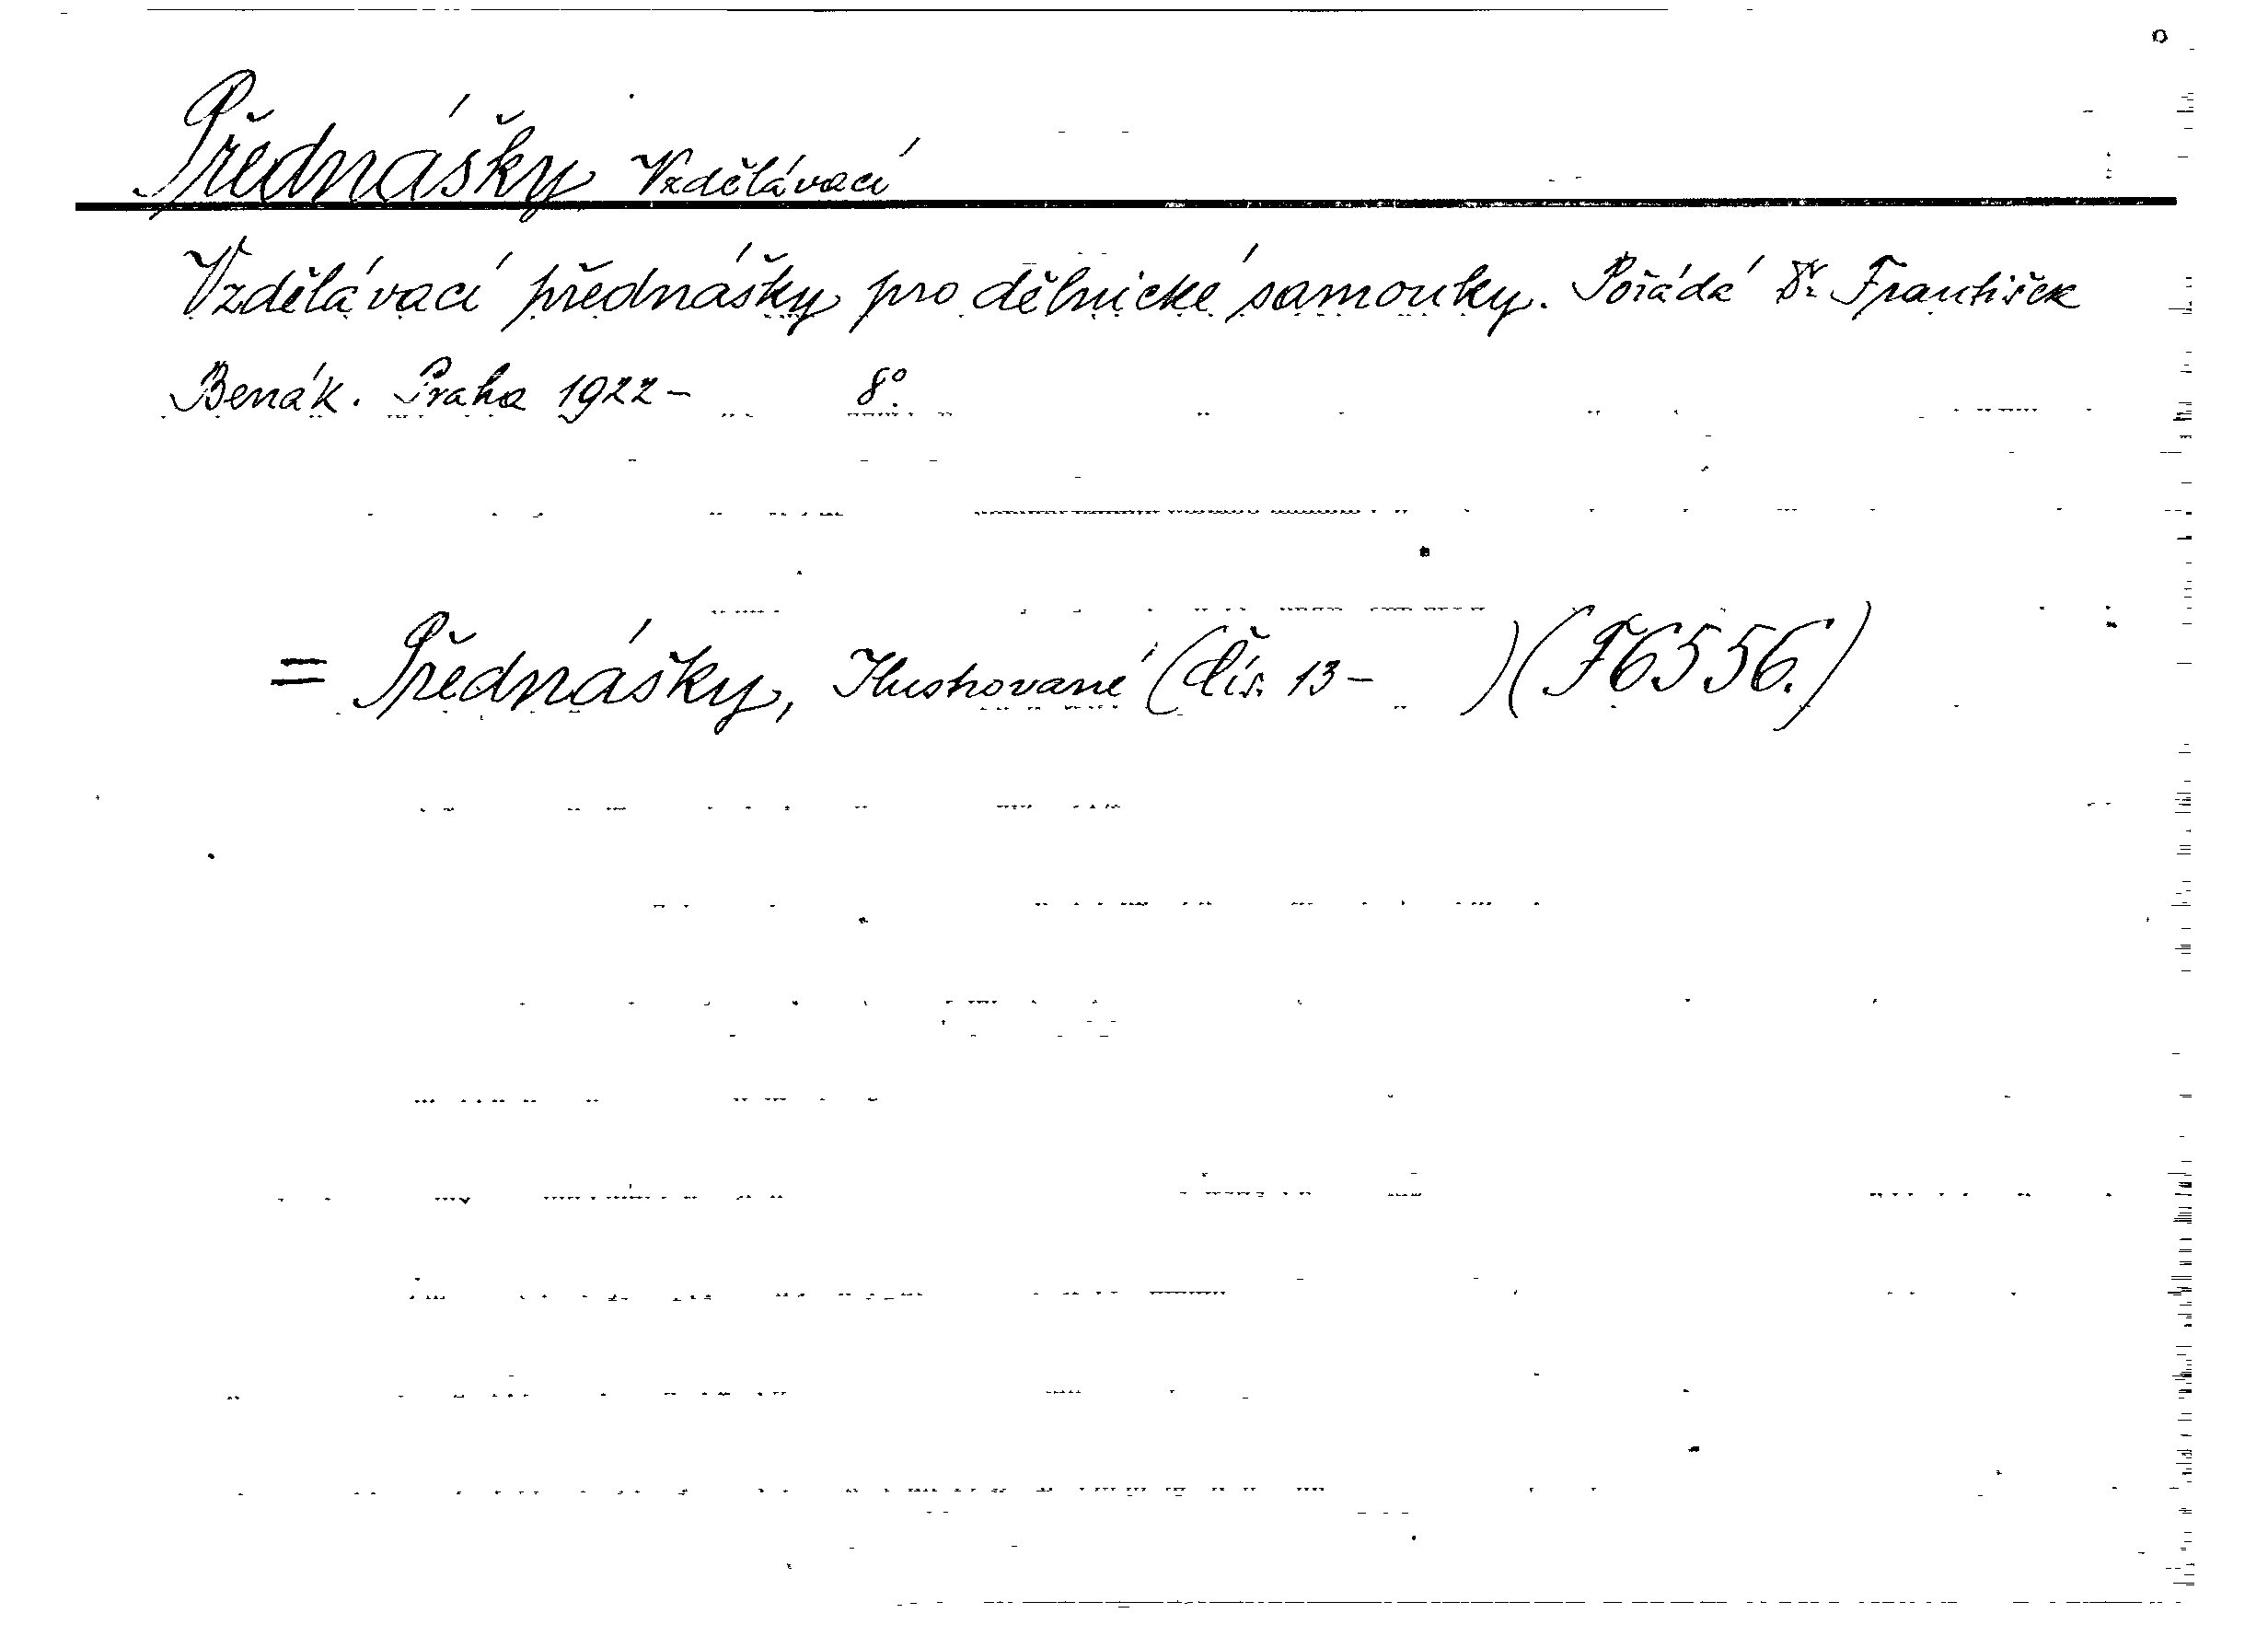 Přednášky Vzdělávací
Vzdělávací přednášky pro dělnické samouky. Pořádá Dr. František
Benák. Praha 1922- 8º.
= Přednášky, Ilustrované (čís. 13- )(F6556.)